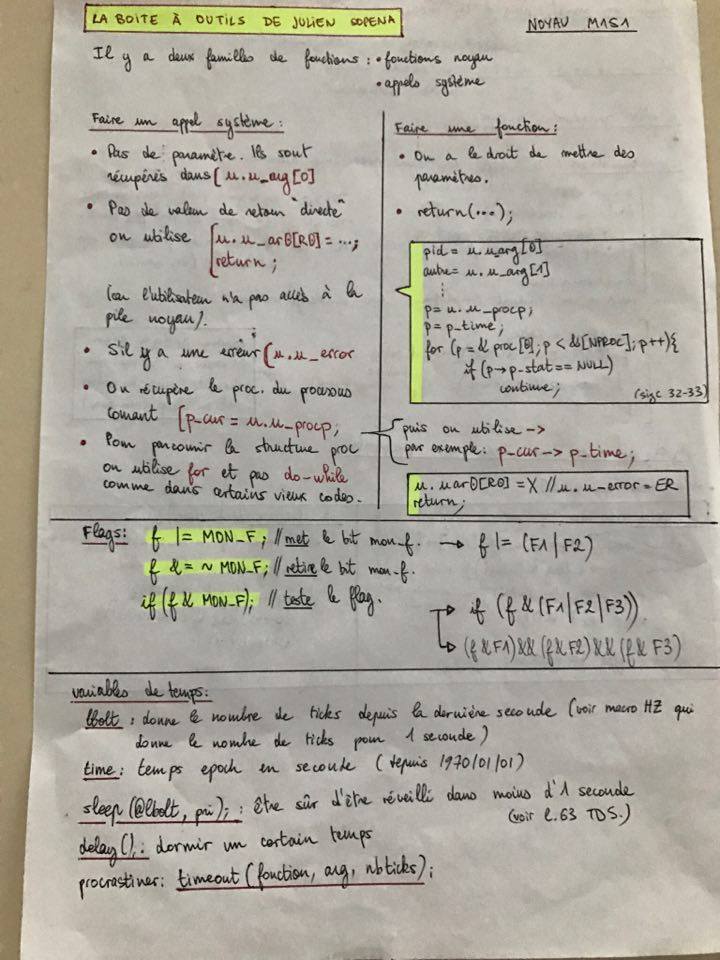 LA BOITE À OUTILS DE JULIEN SOPENA
NOYAU M1S1
Il y a deux familles de fonctions : • fonctions noyau
• appels système
Faire un appel système :
• Pas de paramètre. Ils sont
récupérés dans [ u.u_arg[0]
• Pas de valeur de retour "directe"
on utilise [ u.u_ar0[R0] = ...;
return ;
(car l'utilisateur n'a pas accès à la
pile noyau).
• S'il y a une erreur (u.u_error
• On récupère le proc. du processus
courant [p_cur = u.u_procp;
• Pour parcourir la structure proc
on utilise for et pas do-while
comme dans certains vieux codes.
Faire une fonction :
• On a le droit de mettre des
paramètres.
• return(...);
pid = u.u_arg[0]
autre = u.u_arg[1]
⋮
p = u.u_procp;
p = p_time;
for (p = & proc[0]; p < &&[NPROC]; p++){
if (p→p_stat == NULL)
continue;
(sigc 32-33)
puis on utilise ->
par exemple: p_cur -> p_time;
u.uar0[R0] = X // u.u-error = ER
return;
Flags: f |= MON_F; // met le bit mon_f. → f |= (F1 | F2)
f &= ~ MON_F; // retire le bit mon_f.
if (f & MON_F); // teste le flag.
→ if (f & (F1 | F2 | F3))
→ (f & F1) && (f & F2) && (f & F3)
variables de temps:
lbolt : donne le nombre de ticks depuis la dernière seconde (voir macro HZ qui
donne le nombre de ticks pour 1 seconde)
time : temps epoch en seconde (depuis 1970/01/01)
sleep (@lbolt, pri); : être sûr d'être réveillé dans moins d'1 seconde
(voir l.63 TD5.)
delay(); : dormir un certain temps
procrastiner: timeout (fonction, arg, nbticks);